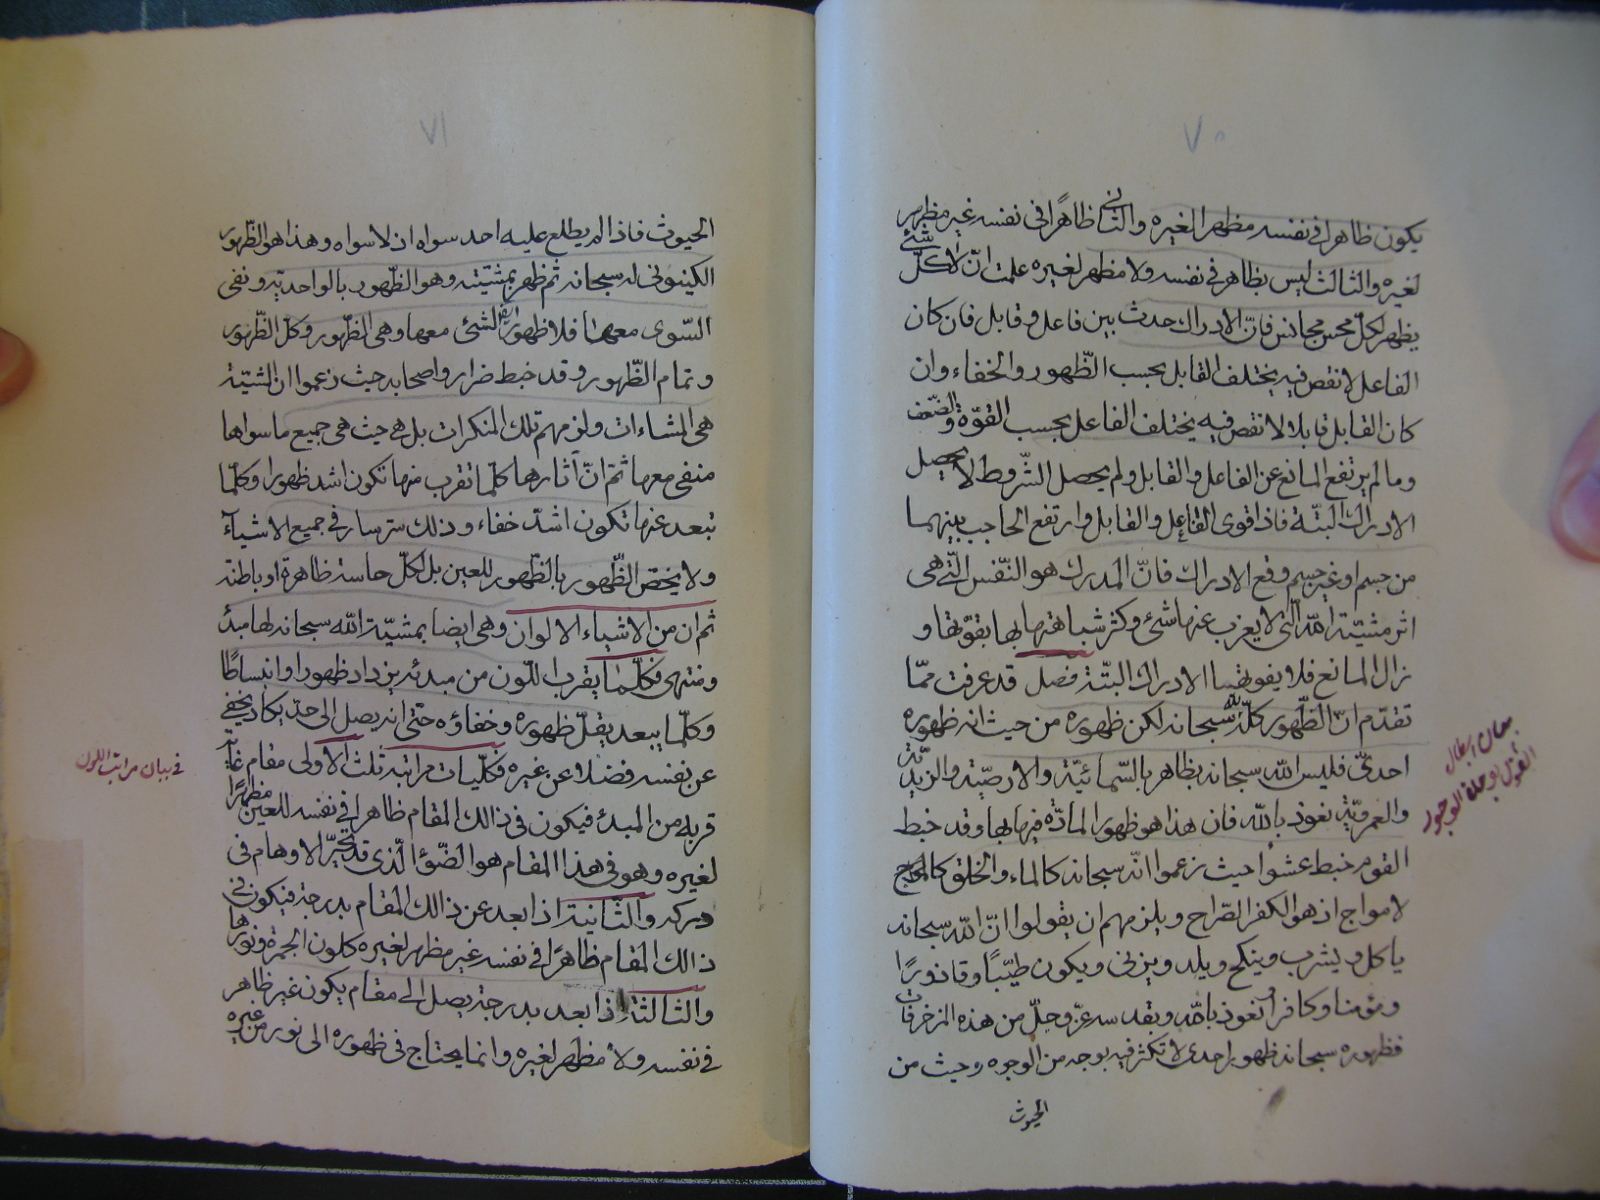 ٧٠
يكون ظاهرا في نفسه مظهرا لغيره والثاني ظاهرًا في نفسه غير مظهر
لغيره والثالث ليس بظاهر في نفسه ولا مظهر لغيره علمت انّ لا كلّ شئ
يظهر لكلّ محس مجانس فانّ الادراك حدث بين فاعل وقابل فان كان
الفاعل لا نقص فيه يختلف القابل بحسب الظّهور والخفاء وان
كان القابل قابلا لا نقص فيه يختلف الفاعل بحسب القوّة والضّعف
وما لم يرتفع المانع عن الفاعل والقابل ولم يحصل الشّروط لا يحصل
الادراك البتّة فاذا قوى الفاعل والقابل وارتفع الحاجب بينهما
من جسم او غير جسم وقع الادراك فانّ المدرك هو النّفس الّتي هى
اثر مشيّة اللّه الّتى لا يعزب عنها شئ وكثر شباهتها بها بقوّتها و
زال المانع فلا يفوتها الادراك البتّة فصل قد عرفت ممّا
تقدّم انّ الظّهور كلّه للّه سبحانه لكن ظهوره من حيث انه ظهوره
احدىّ فليس اللّه سبحانه بظاهر بالسّمائيّة والارضيّة والزيديّة
والعمرويّة نعوذ باللّه فان هذا هو ظهور المادّة فيها بها وقد خبط
القوم خبط عشوا حيث زعموا انّه سبحانه كالماء والخلق كالمواج
لامواج اذ هو الكفر الصّراح ويلزمهم ان يقولوا انّ اللّه سبحانه
ياكل ويشرب وينكح ويلد ويزنى ويكون طيّبًا وقاذورًا
ومؤمنا وكافرا نعوذ باللّه وبقدسه عزّ وجلّ من هذه المزخرفات
فظهوره سبحانه ظهور احدى لا تكثر فيه بوجه من الوجوه وحيث من
الحيوث
القول بوحدة الوجود
٧١
الحيوث فاذا لم يطلع عليه احد سواه اذ لا سواه وهذا هو الظّهور
الكينونى له سبحانه ثم ظهر بمشيّته وهو الظّهور بالواحديّة ونفى
السّوى معها فلا ظهور لشئ معها وهى الظّهور وكلّ الظّهور
وتمام الظّهور وقد خبط ضرار واصحابه حيث زعموا انّ المشيّة
هى المشاءات ولزمهم تلك المنكرات بل هى حيث هى جميع ما سواها
منفى معها ثم انّ آثارها كلّما تقرب منها تكون اشد ظهورا وكلّما
تبعد عنها تكون اشدّ خفاء وذلك سرّ سار في جميع الاشيآء
ولا يختصّ الظّهور بالظّهور للعين بل لكلّ حاسة ظاهرة او باطنة
ثم ان من الاشياء الالوان وهى ايضا بمشيّة اللّه سبحانه لها مبدأ
ومنتهى فكلّما يقرب اللّون من مبدئه يزداد ظهورا وانبساطًا
وكلّما يبعد يقلّ ظهوره وخفاؤه حتى انه يصل الى حدّ يكاد يخفى
عن نفسه فضلا عن غيره فكلّيات مراتبه ثلث الاولى مقام غاية
قربه من المبدأ فيكون في ذالك المقام ظاهرا في نفسه للعين مظهرًا
لغيره وهو في هذا المقام هو الضّوء الّذى قد تحيّر الاوهام في
دركه والثّانية اذا بعد عن ذالك المقام بدرجة فيكون في
ذالك المقام ظاهرًا في نفسه غير مظهر لغيره كلون الجمرة ونورها
والثالثة اذا بعد بدرجة يصل الى مقام يكون غير ظاهر
في نفسه ولا مظهر لغيره وانما يحتاج في ظهوره الى نور من غيره
في بيان مراتب اللون